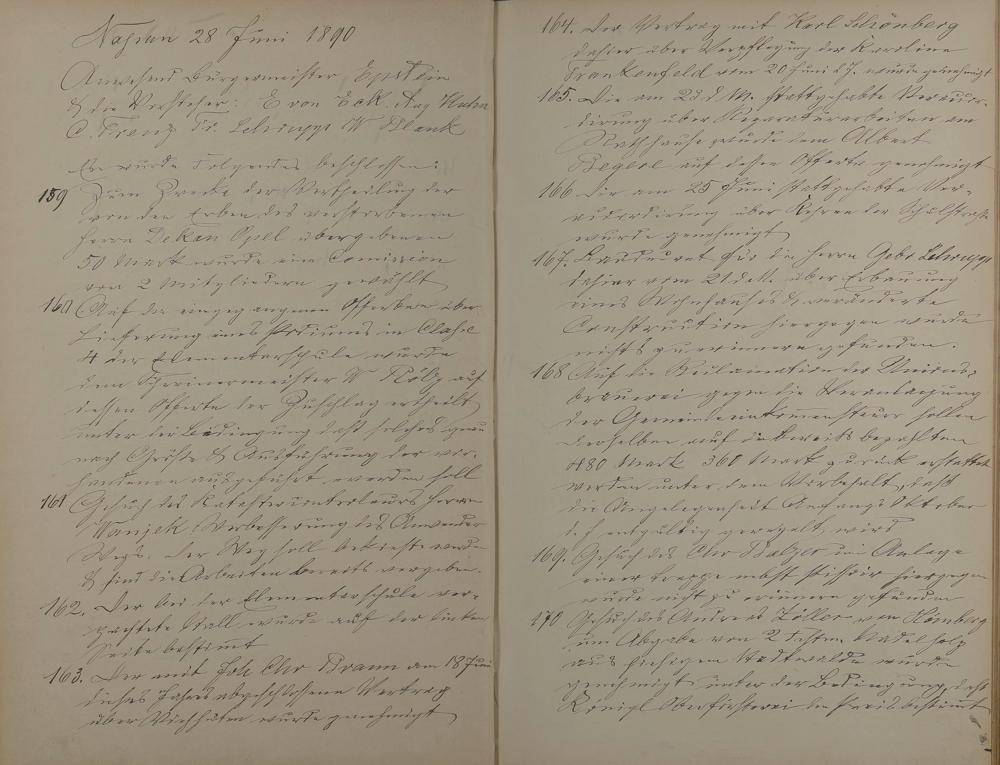 28 Juni 1890
Anwesend Bürgermeister Epstein
& die Vorsteher: E von Eck. Aug
C. Frenz Fr. W Blank
Es wurde Folgendes beschlossen:
159 Zum Zwecke der Vertheilung der
von den Erben des verstorbenen
Herrn Dekan Opel übergebenen
50 Mark wurde eine Comission
von 2 Mitgliedern gewählt
160 Auf die eingegangenen Offerten über
Lieferung eines Podiums in Classe
4 der Elementarschule wurde
dem Schreinermeister W auf
dessen Offerte der Zuschlag ertheilt
unter der Bedingung daß solches genau
nach Größe & Ausführung der vor-
handenen ausgeführt werden soll
161 Gesuch des Katastercontroleurs Herrn
Wanjek Verbesserung des
Wegs. Der Weg soll werden
& sind die Arbeiten bereits vergeben.
162. Der bei der Elementarschule ver-
pachtete Stall wurde auf der linken
Seite bestimmt
163. Der mit Joh Chr Braun am 18 Juni
dieses Jahres abgeschlossene Vertrag
über Viehhüten wurde genehmigt
164. Der Vertrag mit Karl Schönberg
dahier über Verpflegung der Karoline
Frankenfeld vom 20 Juni d J. wurde genehmigt
165. Die am 23 d M. stattgehabte
über Reparaturarbeiten am
Rathhause wurde dem Albert
auf dessen Offerte genehmigt
166 Die am 25 Juni stattgehabte Ver-
über Kehren der Schulstraße
wurde genehmigt
167. für die Herrn Gebr
dahier vom 21 d M. über Erbauung
eines Wohnhauses & veränderte
Construction hiergegen wurde
nichts zu erinnern gefunden.
168 Auf die Reclamation der
brauerei gegen die Veranlagung
der Gemeindeeinkommensteuer sollen
derselben auf die bereits bezahlten
880 Mark 360 Mark zurück erstattet
werden unter dem Vorbehalt, daß
die Angelegenheit Anfangs Oktober
d. J endgültig geregelt wird
169. Gesuch des Chr Balzer um Anlage
einer Treppe nebst hiergegen
wurde nichts zu erinnern gefunden
170 Gesuch des Andreas Zöller von Homberg
um Abgabe von 2 Nadelholz
aus hiesigem Stadtwalde wurde
genehmigt unter der Bedingung, daß
Königl Oberförsterei den Preis bestimmt